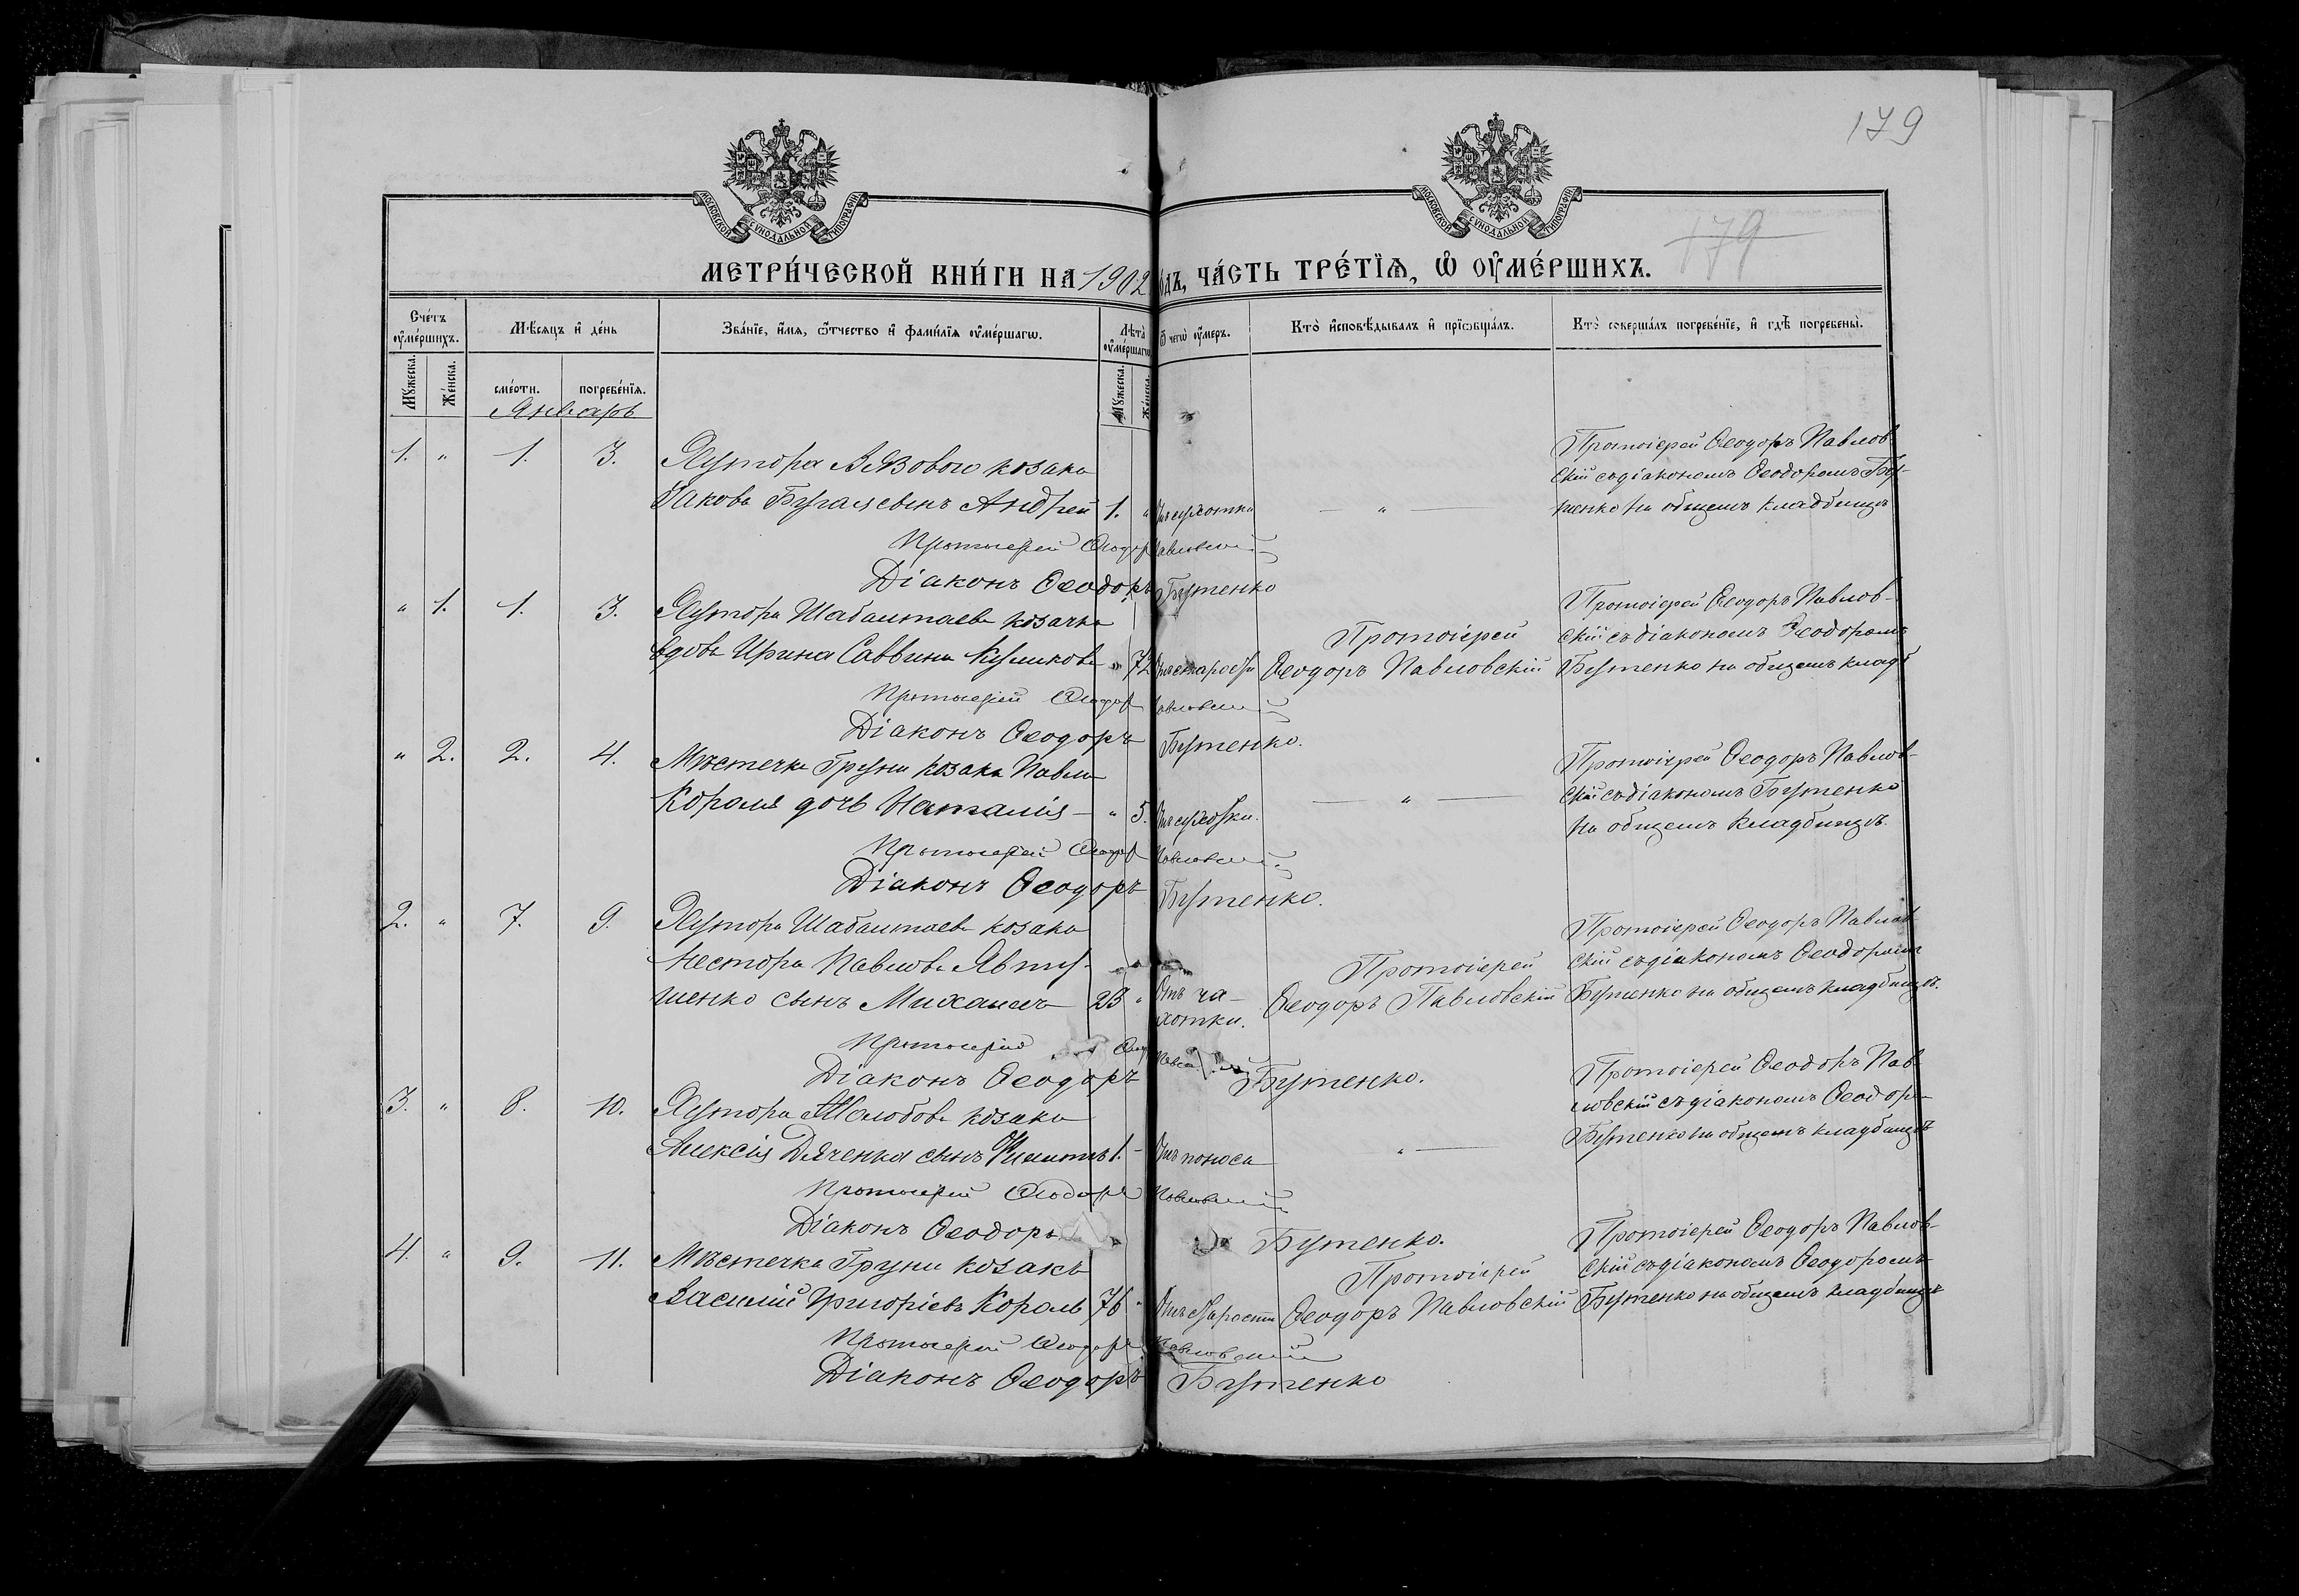 179
МОСКОВСКОЙ СѴНОДАЛЬНОЙ ТИПОГРАФІИ
МОСКОВСКОЙ СѴНОДАЛЬНОЙ ТИПОГРАФІИ
179
МЕТРИ́ЧЕСКОЙ КНИ́ГИ НА 1902 ОДЪ, ЧА́СТЬ ТРЕ́ТЇѦ, Ѡ ОУМЕ́РШИХЪ.
Сче́тъ оумершихъ.
Мѣсяцъ и де́нь
Зва́нїе, имя, ѿтчество и фамилїя оумершагѡ.
Лѣта оумершагѡ
Ѿ чегѡ оумеръ.
Кто исповѣдывалъ и прїѡбщалъ.
Кто совершалъ погребенїе, и гдѣ погребены.
Мꙋжеска.
Же́нска.
сме́рти.
погребе́нїя.
Мꙋжеска.
Же́нска.
Январь
1. " 1. 3. Хутора козака
Якова Бугая сынъ Андрей 1. " Отъ сухотки — " — Протоіерей Ѳеодоръ Павлов-
скій съ діакономъ Ѳеодоромъ Бу-
тенко на общемъ кладбищѣ
Протоіерей Ѳеодоръ Павловскій
Діаконъ Ѳеодоръ Бутенко
" 1. 1. 3. Хутора Шабалтаева козачка
вдова Ирина Саввина Куликова " 72 Отъ старости Протоіерей Ѳеодоръ Павловскій Протоіерей Ѳеодоръ Павлов-
скій съ діакономъ Ѳеодоромъ
Бутенко на общемъ кладб
Протоіерей Ѳеодоръ Павловскій
Діаконъ Ѳеодоръ Бутенко.
" 2. 2. 4. Мѣстечка Груни козака Павла
Короля дочь Наталія — " 5. Отъ сухотки. — " — Протоіерей Ѳеодоръ Павлов-
скій съ діакономъ Бутенко
на общемъ кладбищѣ.
Протоіерей Ѳеодоръ Павловскій
Діаконъ Ѳеодоръ Бутенко.
2. " 7. 9. Хутора Шабалтаева козака
Нестора Павлова Явту-
шенко сынъ Михаилъ 23 " Отъ ча-
хотки. Протоіерей
Ѳеодоръ Павловскій Протоіерей Ѳеодоръ Павлов-
скій съ діакономъ Ѳеодоромъ
Бутенко на общемъ кладбищѣ.
Протоіерей
Діаконъ Ѳеодоръ Бутенко.
3. " 8. 10. Хутора козака
Алексія Дяченка сынъ Филиппъ 1. - Отъ поноса " — Протоіерей Ѳеодоръ Пав-
ловскій съ діакономъ Ѳеодор
Бутенко на общемъ кладбищѣ
Протоіерей Ѳеодоръ Павловскій
Діаконъ Ѳеодоръ Бутенко.
4. " 9. 11. Мѣстечка Груни козакъ
Василій Григоріевъ Король 76 " Отъ старости Протоіерей
Ѳеодоръ Павловскій Протоіерей Ѳеодоръ Павлов-
скій съ діакономъ Ѳеодоромъ
Бутенко на общемъ кладбищѣ
Протоіерей Ѳеодоръ Павловскій
Діаконъ Ѳеодоръ Бутенко